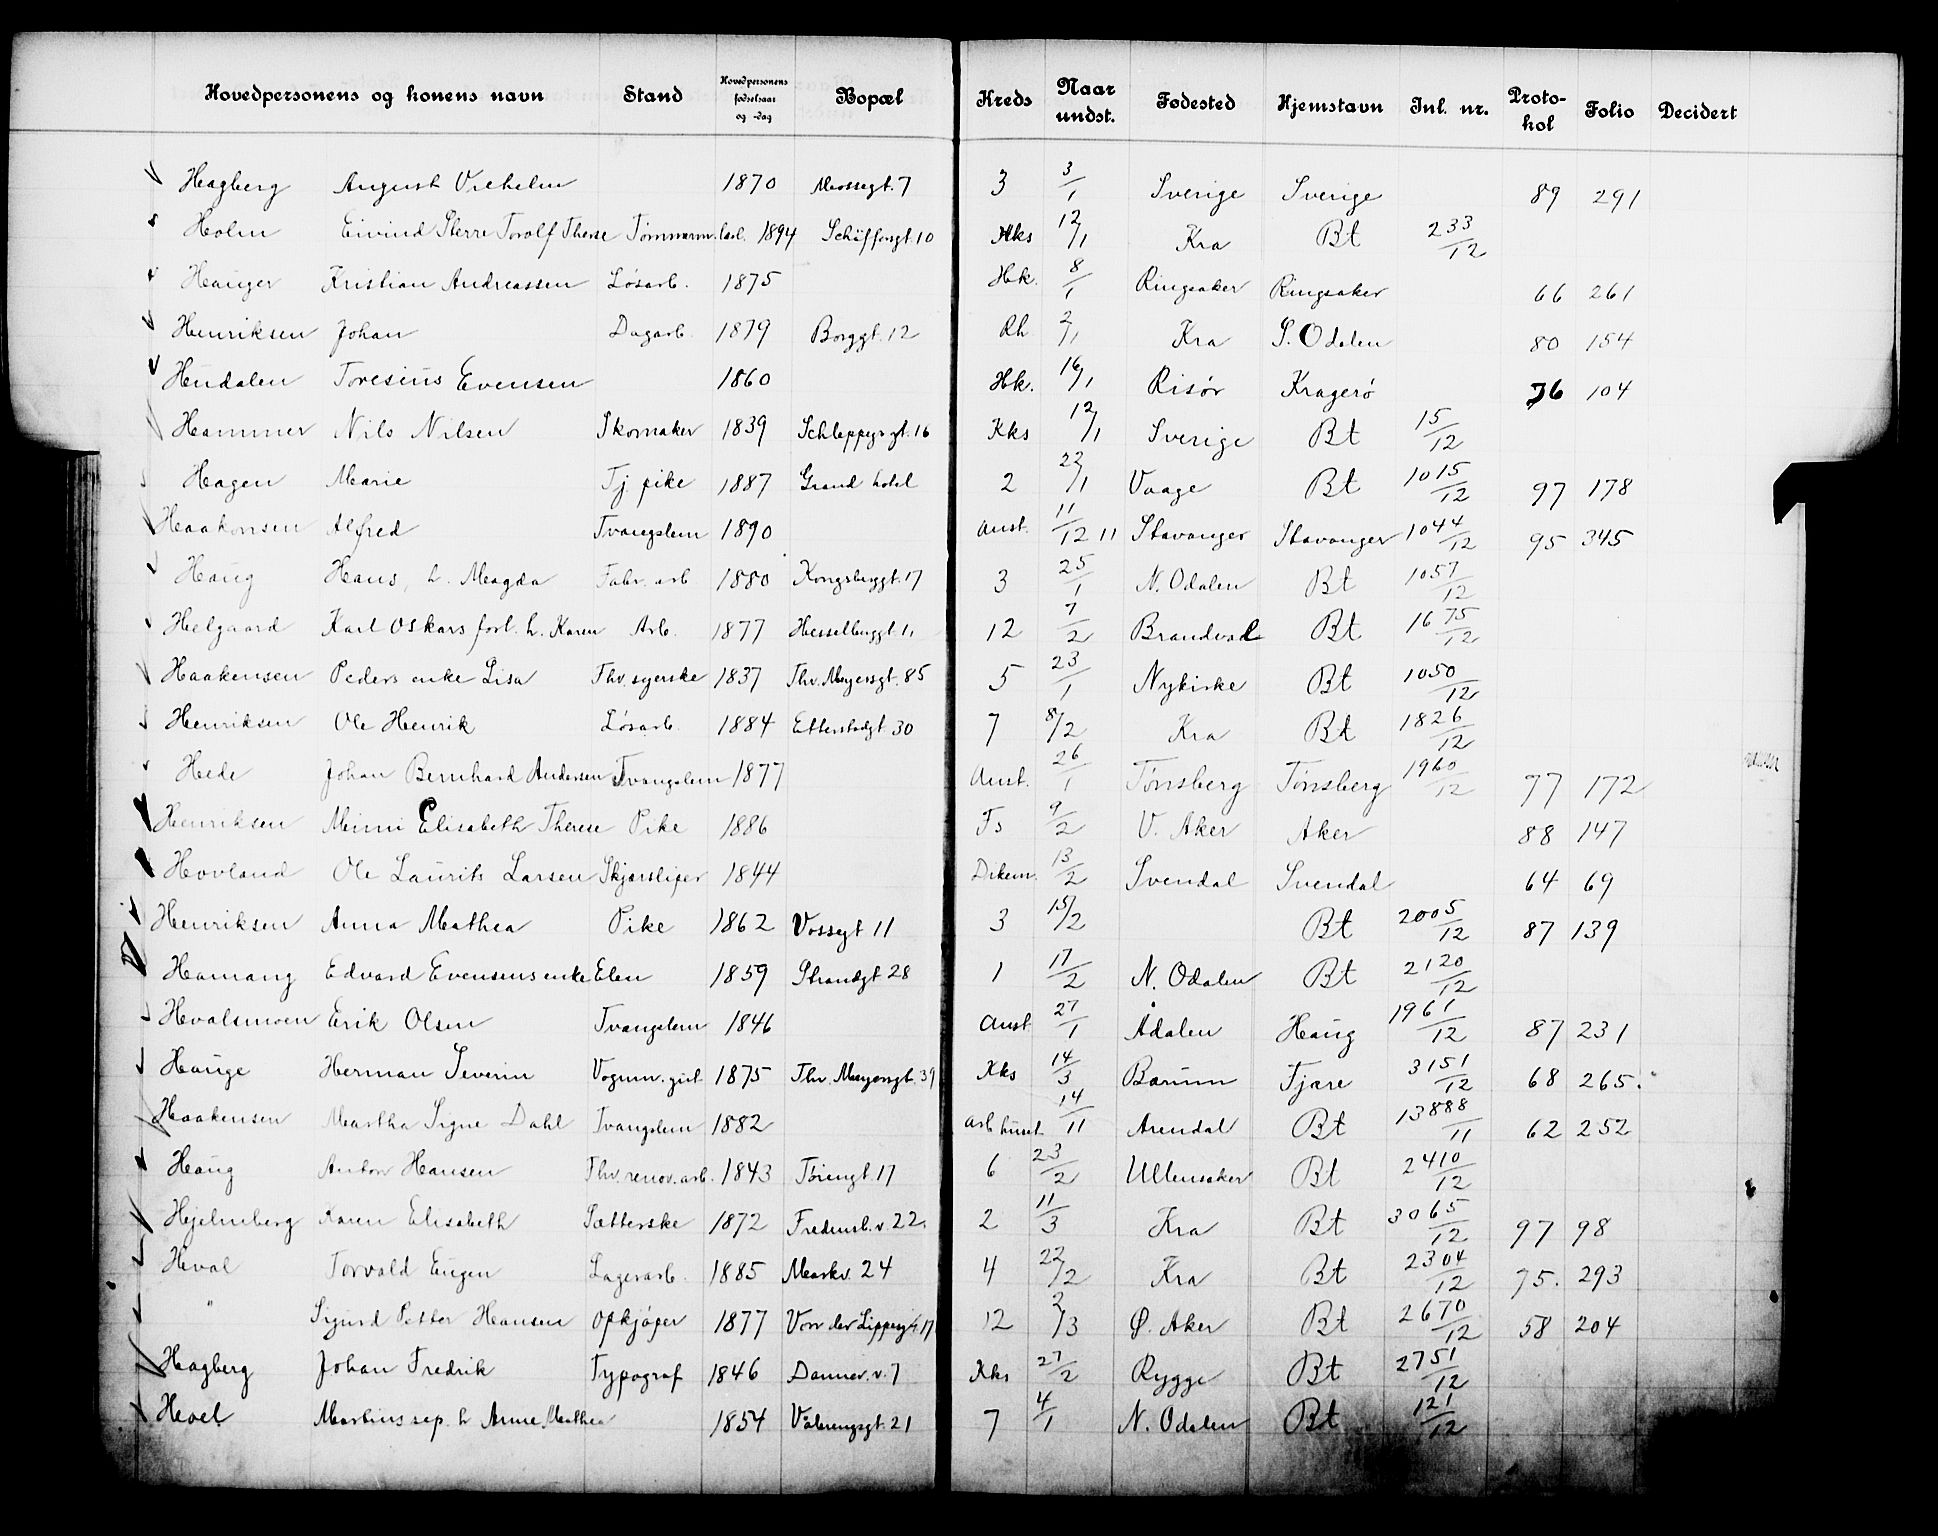 Hovedpersonens og konens navn Stand Hovedpersonens fødselsaar og -dag Bopæl Kreds Naar undst. Fødested Hjemstavn Inl. nr. Protokol Folio Decidert
Hagberg August Vilhelm 1870 Mossegt. 7 3 3/1 Sverige Sverige 89 291
Holm Eivind Sterre Torolf Therse Tømmerm. 1894 Schäffersgt. 10 Kks 12/1 Kra Bt 233/12
Hauger Kristian Andreassen Løsarb. 1875 Hk. 8/1 Ringsaker Ringsaker 66 261
Henriksen Johan Dagarb. 1879 Borggt. 12 Rh 2/1 Kra S. Odalen 80 154
Hendalen Toresius Evensen 1860 Hk. 16/1 Risør Kragerö 76 104
Hammer Nils Nilsen Skomaker 1839 Schleppegr.gt. 16 Kks 12/1 Sverige Bt 15/12
Hagen Marie Tj. pike 1887 Grand hotel 2 22/1 Vaage Bt 1015/12 97 178
Haakonsen Alfred Tvangslem 1890 Anst. 11/12 11 Stavanger Stavanger 1044/12 95 345
Haug Hans, h. Magda Fabr. arb 1880 Kongsberggt. 17 3 25/1 N. Odalen Bt 1057/12
Helgaard Karl Oskars forl. h. Karen Arb. 1877 Hesselberggt. 11 12 7/2 Brandval Bt 1675/12
Haakensen Peders enke Lisa Fhv. syerske 1837 Thv. Meyersgt. 85 5 23/1 Nykirke Bt 1050/12
Henriksen Ole Henrik Løsarb. 1884 Etterstadgt 30 7 8/2 Kra Bt 1826/12
Hede Johan Bernhard Andersen Tvangslem 1877 Anst. 26/1 Tønsberg Tønsberg 1960/12 77 172
Henriksen Mimi Elisabeth Therese Pike 1886 Fs 9/2 V. Aker Aker 88 147
Hovland Ole Laurits Larsen Skjærsliper 1844 Dikem. 13/2 Svendal Svendal 64 69
Henriksen Anna Mathea Pike 1862 Vossegt 11 3 15/2 Bt 2005/12 87 139
Hamang Edvard Evensens enke Elen 1859 Strandgt 28 1 17/2 N. Odalen Bt 2120/12
Hevalsmoen Erik Olsen Tvangslem 1846 Anst 27/1 Ådalen Haug 1961/12 87 231
Hauge Herman Severin Vognm. gut 1875 Thv. Meyersgt. 39 Kks 14/3 Bærum Tjøre 3151/12 68 265.
Haakensen Martha Signe Dahl Tvangslem 1882 Arb huset 14/11 Arendal Bt 13888/11 62 252
Haug Anton Hansen Fhv. renov. arb. 1843 Töiengt. 17 6 23/2 Ullensaker Bt 2410/12
Hjelmberg Karen Elisabeth Sætterske 1872 Fredensb. v. 22 2 11/3 Kra Bt 3065/12 97 98
Heval Torvald Eugen Lagerarb. 1885 Markv. 24 4 22/2 Kra Bt 2304/12 75. 293
" Sigurd Petter Hansen Opkjøper 1877 Von der Lippesgt. 17 12 2/3 Ø. Aker Bt 2670/12 58 204
Hagberg Johan Fredrik Typograf 1846 Dannev. v. 7 Kks 27/2 Rygge Bt 2751/12
Hoel Martins sep. h Anne Mathea 1854 Vålerengsgt. 21 7 4/1 N. Odalen Bt 121/12